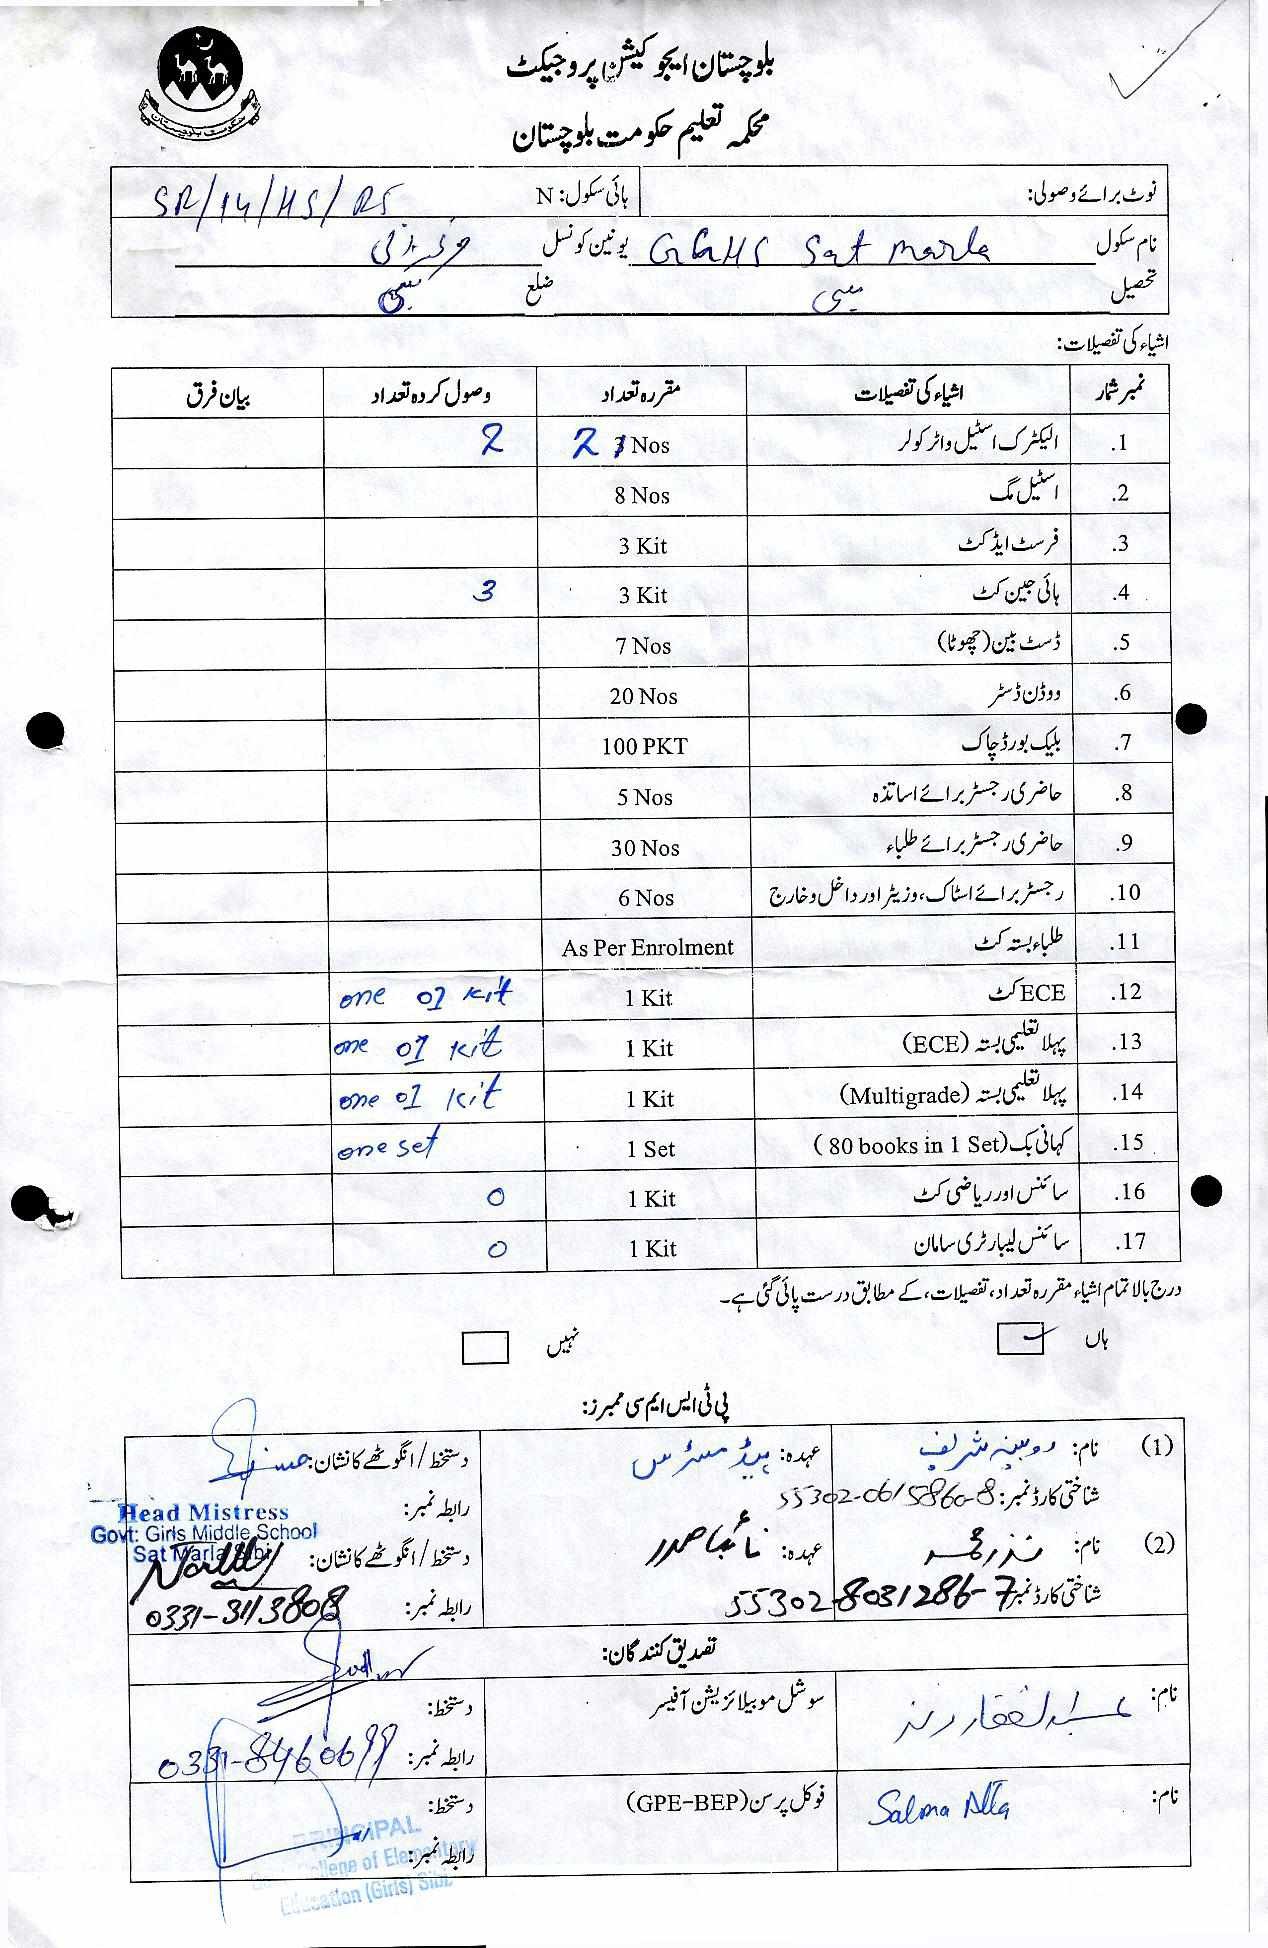 بلوچستان ایجوکیشن پروجیکٹ
محکمہ تعلیم حکومت بلوچستان
حکومت بلوچستان
نوٹ برائے وصولی: ہائی سکول: N SR/14/HS/RS
نام سکول GGHS Sat Marla یونین کونسل
تحصیل سبی ضلع سبی
اشیاء کی تفصیلات:
نمبر شمار اشیاء کی تفصیلات مقررہ تعداد وصول کردہ تعداد بیان فرق
1. الیکٹرک اسٹیل واٹر کولر 2 Nos 2
2. اسٹیل مگ 8 Nos
3. فرسٹ ایڈ کٹ 3 Kit
4. ہائی جین کٹ 3 Kit 3
5. ڈسٹ بین (چھوٹا) 7 Nos
6. ووڈن ڈسٹر 20 Nos
7. بلیک بورڈ چاک 100 PKT
8. حاضری رجسٹر برائے اساتذہ 5 Nos
9. حاضری رجسٹر برائے طلباء 30 Nos
10. رجسٹر برائے اسٹاک، وزیٹر اور داخل و خارج 6 Nos
11. طلباء بستہ کٹ As Per Enrolment
12. ECE کٹ 1 Kit one 01 kit
13. پہلا تعلیمی بستہ (ECE) 1 Kit one 01 kit
14. پہلا تعلیمی بستہ (Multigrade) 1 Kit one 01 kit
15. کہانی بک (80 books in 1 Set) 1 Set one set
16. سائنس اور ریاضی کٹ 1 Kit 0
17. سائنس لیبارٹری سامان 1 Kit 0
درج بالا تمام اشیاء مقررہ تعداد، تفصیلات، کے مطابق درست پائی گئی ہے۔
ہاں نہیں
پی ٹی ایس ایم سی ممبرز:
(1) نام: روبینہ شریف عہدہ: ہیڈ مسٹرس دستخط / انگوٹھے کا نشان:
شناختی کارڈ نمبر: 55302-0615860-8 رابطہ نمبر:
Head Mistress
Govt: Girls Middle School
Sat Marla Sibi
(2) نام: نذر محمد عہدہ: نائب صدر دستخط / انگوٹھے کا نشان:
شناختی کارڈ نمبر 55302-8031286-7 رابطہ نمبر: 0331-3113808
تصدیق کنندگان:
نام: عبدالغفار رند سوشل موبیلائزیشن آفیسر دستخط:
رابطہ نمبر: 0331-8460699
نام: Salma Atta فوکل پرسن (GPE-BEP) دستخط:
رابطہ نمبر:
PRINCIPAL
College of Elementary
Education (Girls) Sibi